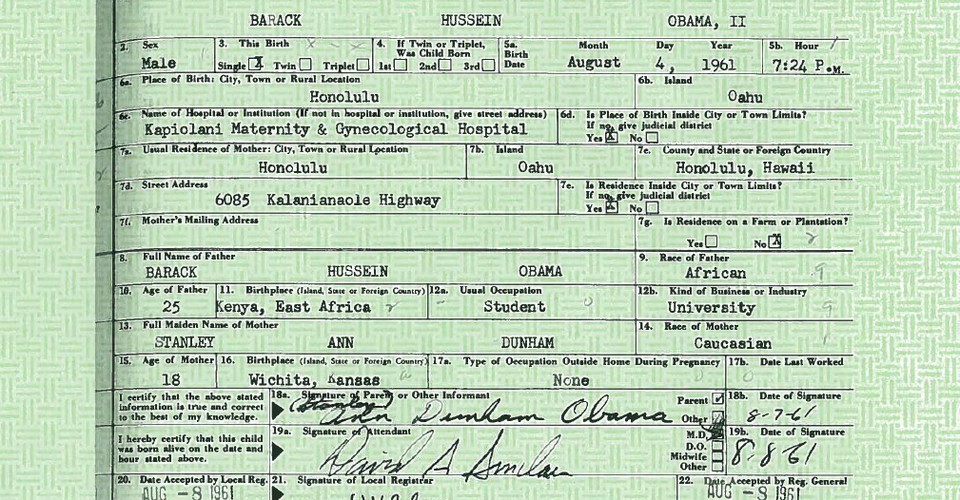 BARACK HUSSEIN OBAMA, II
2. Sex 3. This Birth 4. If Twin or Triplet, Was Child Born 5a. Birth Date Month Day Year 5b. Hour
Male Single X Twin Triplet 1st 2nd 3rd August 4, 1961 7:24 P.M.
6a. Place of Birth: City, Town or Rural Location 6b. Island
Honolulu Oahu
6c. Name of Hospital or Institution (If not in hospital or institution, give street address) 6d. Is Place of Birth Inside City or Town Limits?
If no, give judicial district
Kapiolani Maternity & Gynecological Hospital Yes X No
7a. Usual Residence of Mother: City, Town or Rural Location 7b. Island 7c. County and State or Foreign Country
Honolulu Oahu Honolulu, Hawaii
7d. Street Address 7e. Is Residence Inside City or Town Limits?
If no, give judicial district
6085 Kalanianaole Highway Yes X No
7f. Mother's Mailing Address 7g. Is Residence on a Farm or Plantation?
Yes No X
8. Full Name of Father 9. Race of Father
BARACK HUSSEIN OBAMA African 9
10. Age of Father 11. Birthplace (Island, State or Foreign Country) 12a. Usual Occupation 12b. Kind of Business or Industry
25 Kenya, East Africa Student University 9
13. Full Maiden Name of Mother 14. Race of Mother
STANLEY ANN DUNHAM Caucasian
15. Age of Mother 16. Birthplace (Island, State or Foreign Country) 17a. Type of Occupation Outside Home During Pregnancy 17b. Date Last Worked
18 Wichita, Kansas None
I certify that the above stated information is true and correct to the best of my knowledge. 18a. Signature of Parent or Other Informant Parent Other 18b. Date of Signature
(Stanley) Ann Dunham Obama 8-7-61
I hereby certify that this child was born alive on the date and hour stated above. 19a. Signature of Attendant M.D. D.O. Midwife Other 19b. Date of Signature
David A Sinclair 8-8-61
20. Date Accepted by Local Reg. 21. Signature of Local Registrar 22. Date Accepted by Reg. General
AUG -8 1961 AUG -8 1961